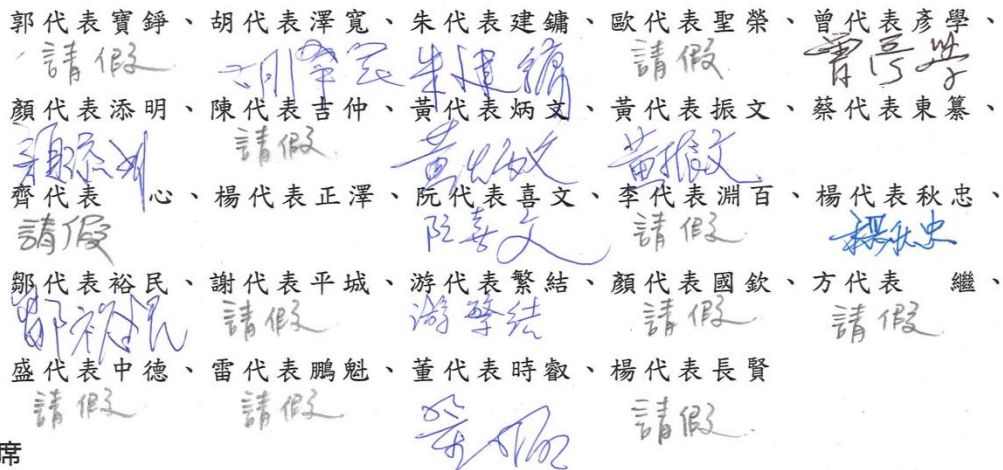 郭代表寶錚、胡代表澤寬、朱代表建鏞、歐代表聖榮、曾代表彥學、
請假 胡澤寬 朱建鏞 請假 曾彥學
顏代表添明、陳代表吉仲、黃代表炳文、黃代表振文、蔡代表東纂、
顏添明 請假 黃炳文 黃振文
齊代表 心、楊代表正澤、阮代表喜文、李代表淵百、楊代表秋忠、
請假 阮喜文 請假 楊秋忠
鄒代表裕民、謝代表平城、游代表繁結、顏代表國欽、方代表 繼、
鄒裕民 請假 游繁結 請假 請假
盛代表中德、雷代表鵬魁、董代表時叡、楊代表長賢
請假 請假 請假
席